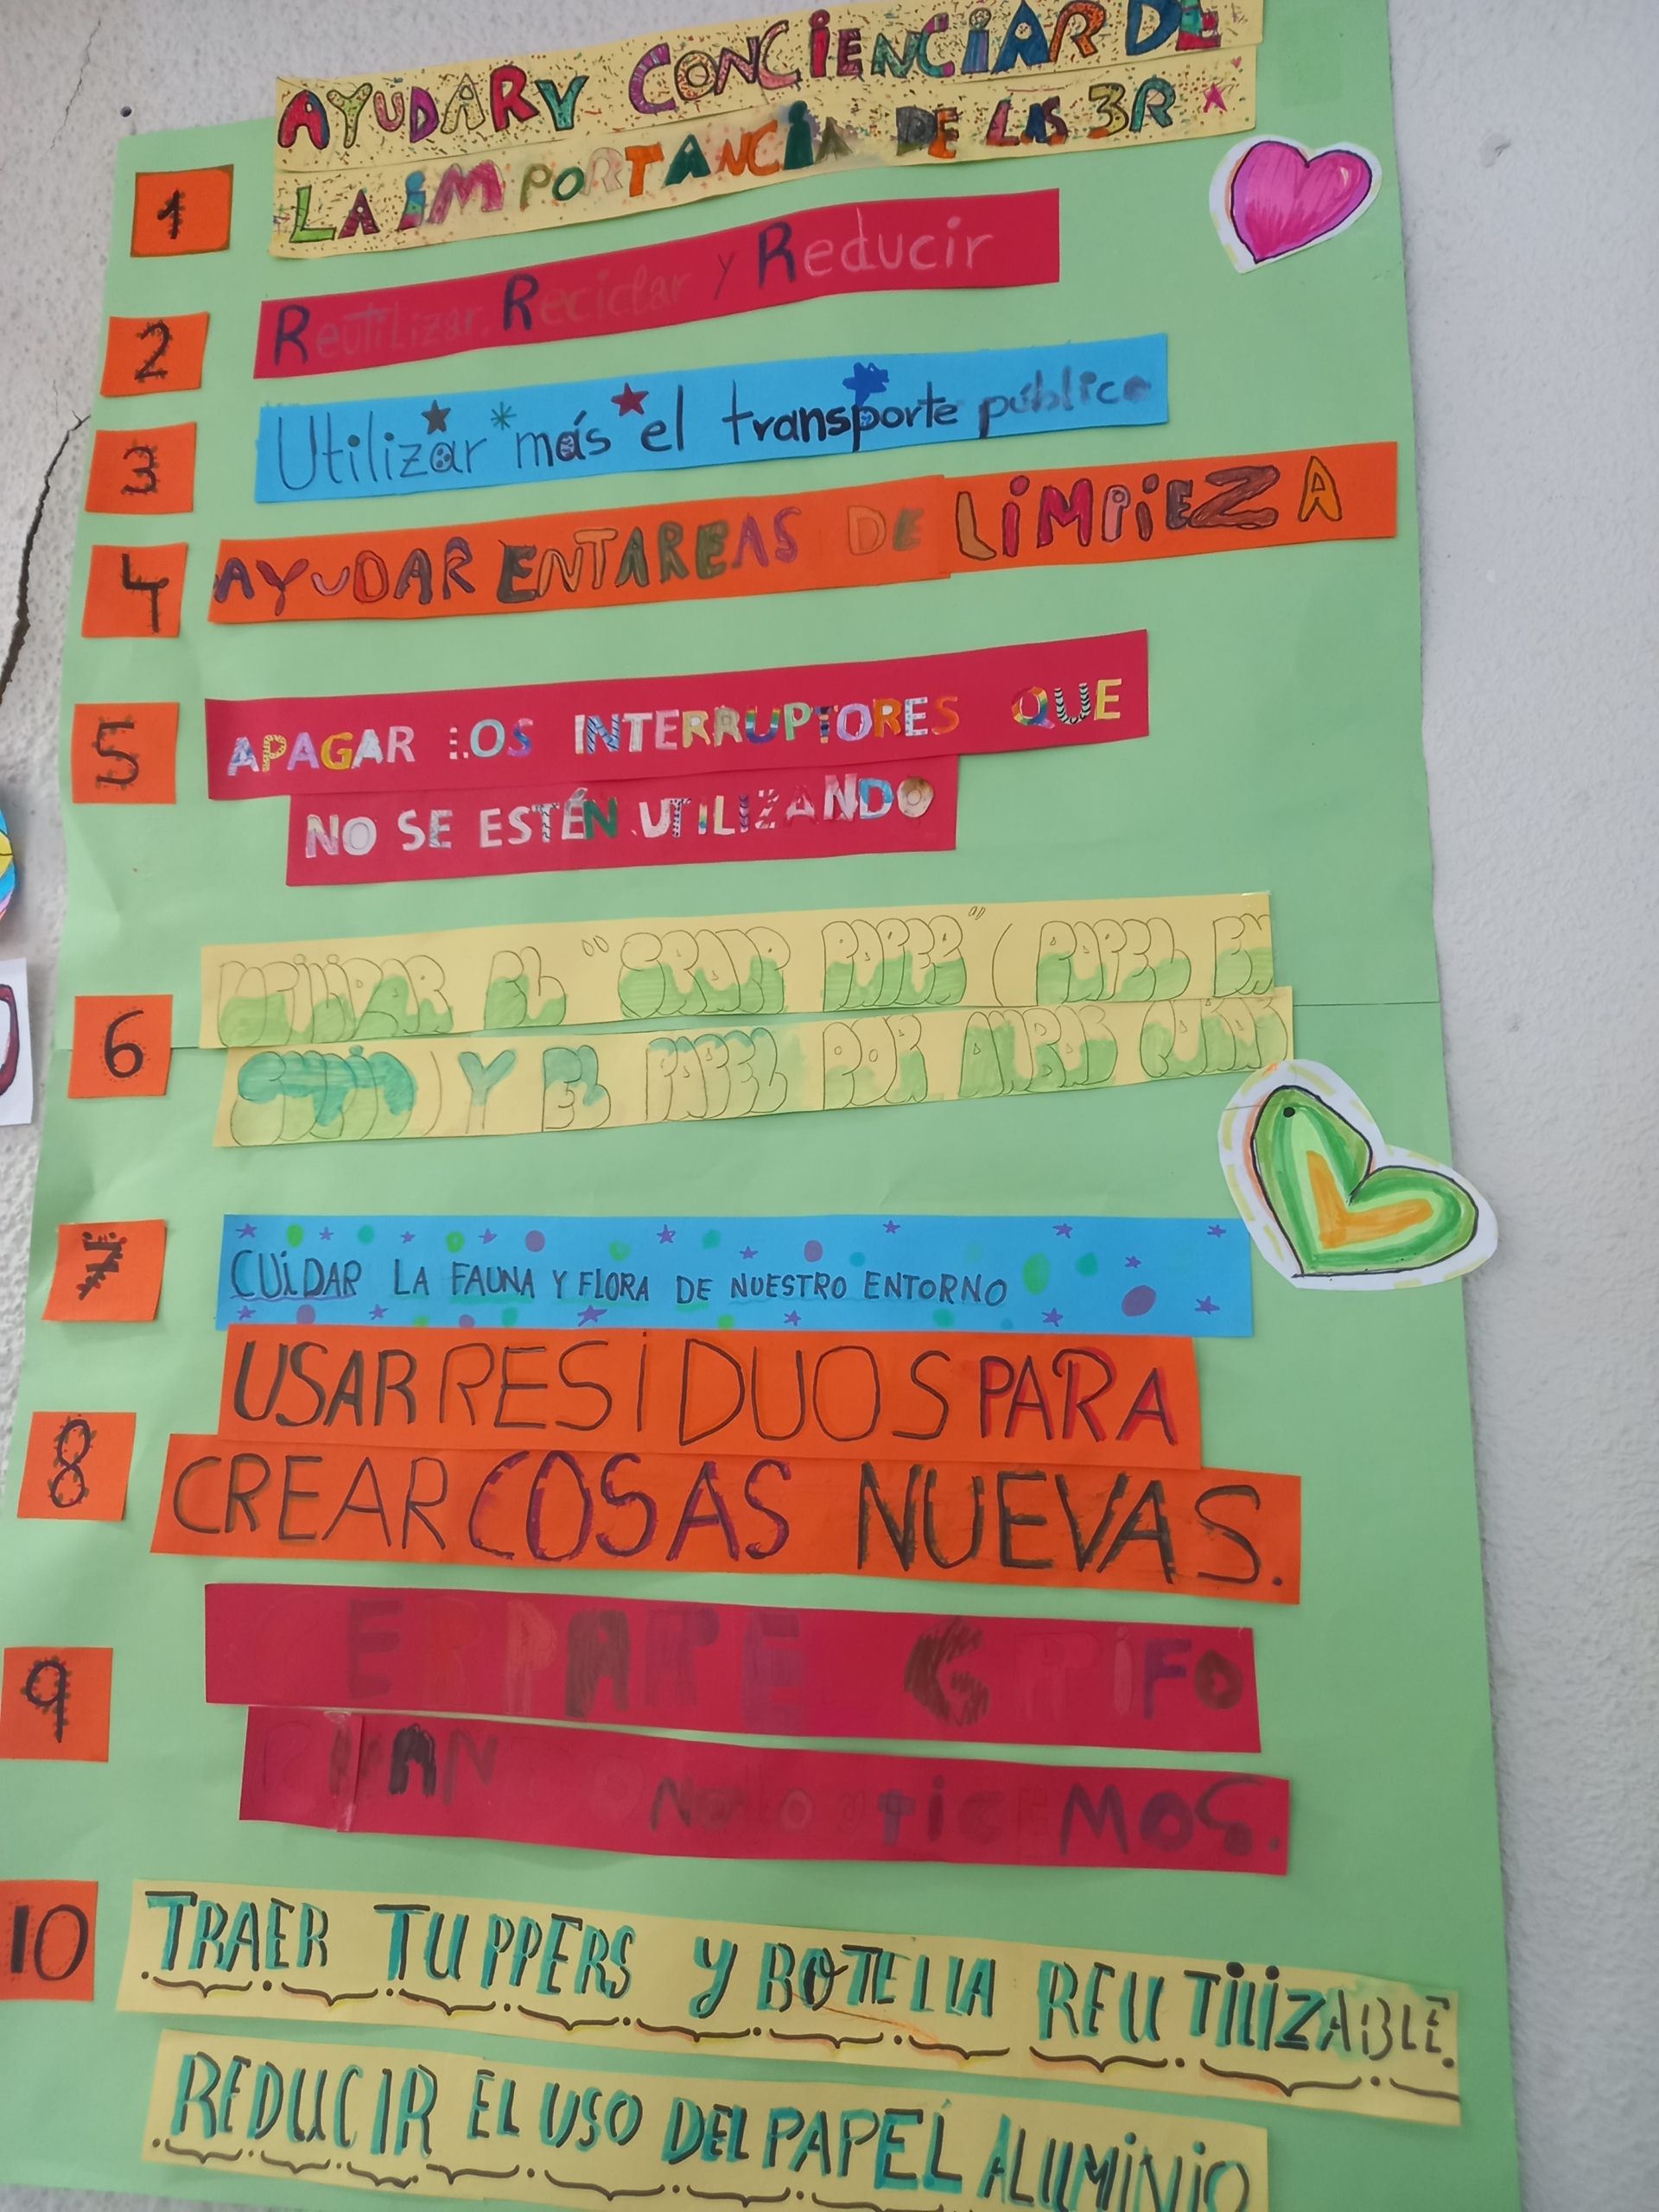 AYUDAR Y CONCIENCIAR DE
1
LA IMPORTANCIA DE LAS 3R
2
Reutilizar, Reciclar y Reducir
3
Utilizar más el transporte público
4
AYUDAR EN TAREAS DE LIMPIEZA
5
APAGAR LOS INTERRUPTORES QUE
NO SE ESTÉN UTILIZANDO
6
UTILIZAR EL " PAPER" (PAPEL EN
SUCIO) Y EL PAPEL POR AMBAS CARAS
7
CUIDAR LA FAUNA Y FLORA DE NUESTRO ENTORNO
8
USAR RESIDUOS PARA
CREAR COSAS NUEVAS.
9
CERRAR EL GRIFO
CUANDO NO LO UTILICEMOS.
10
TRAER TUPPERS Y BOTELLA REUTILIZABLE.
REDUCIR EL USO DEL PAPEL ALUMINIO